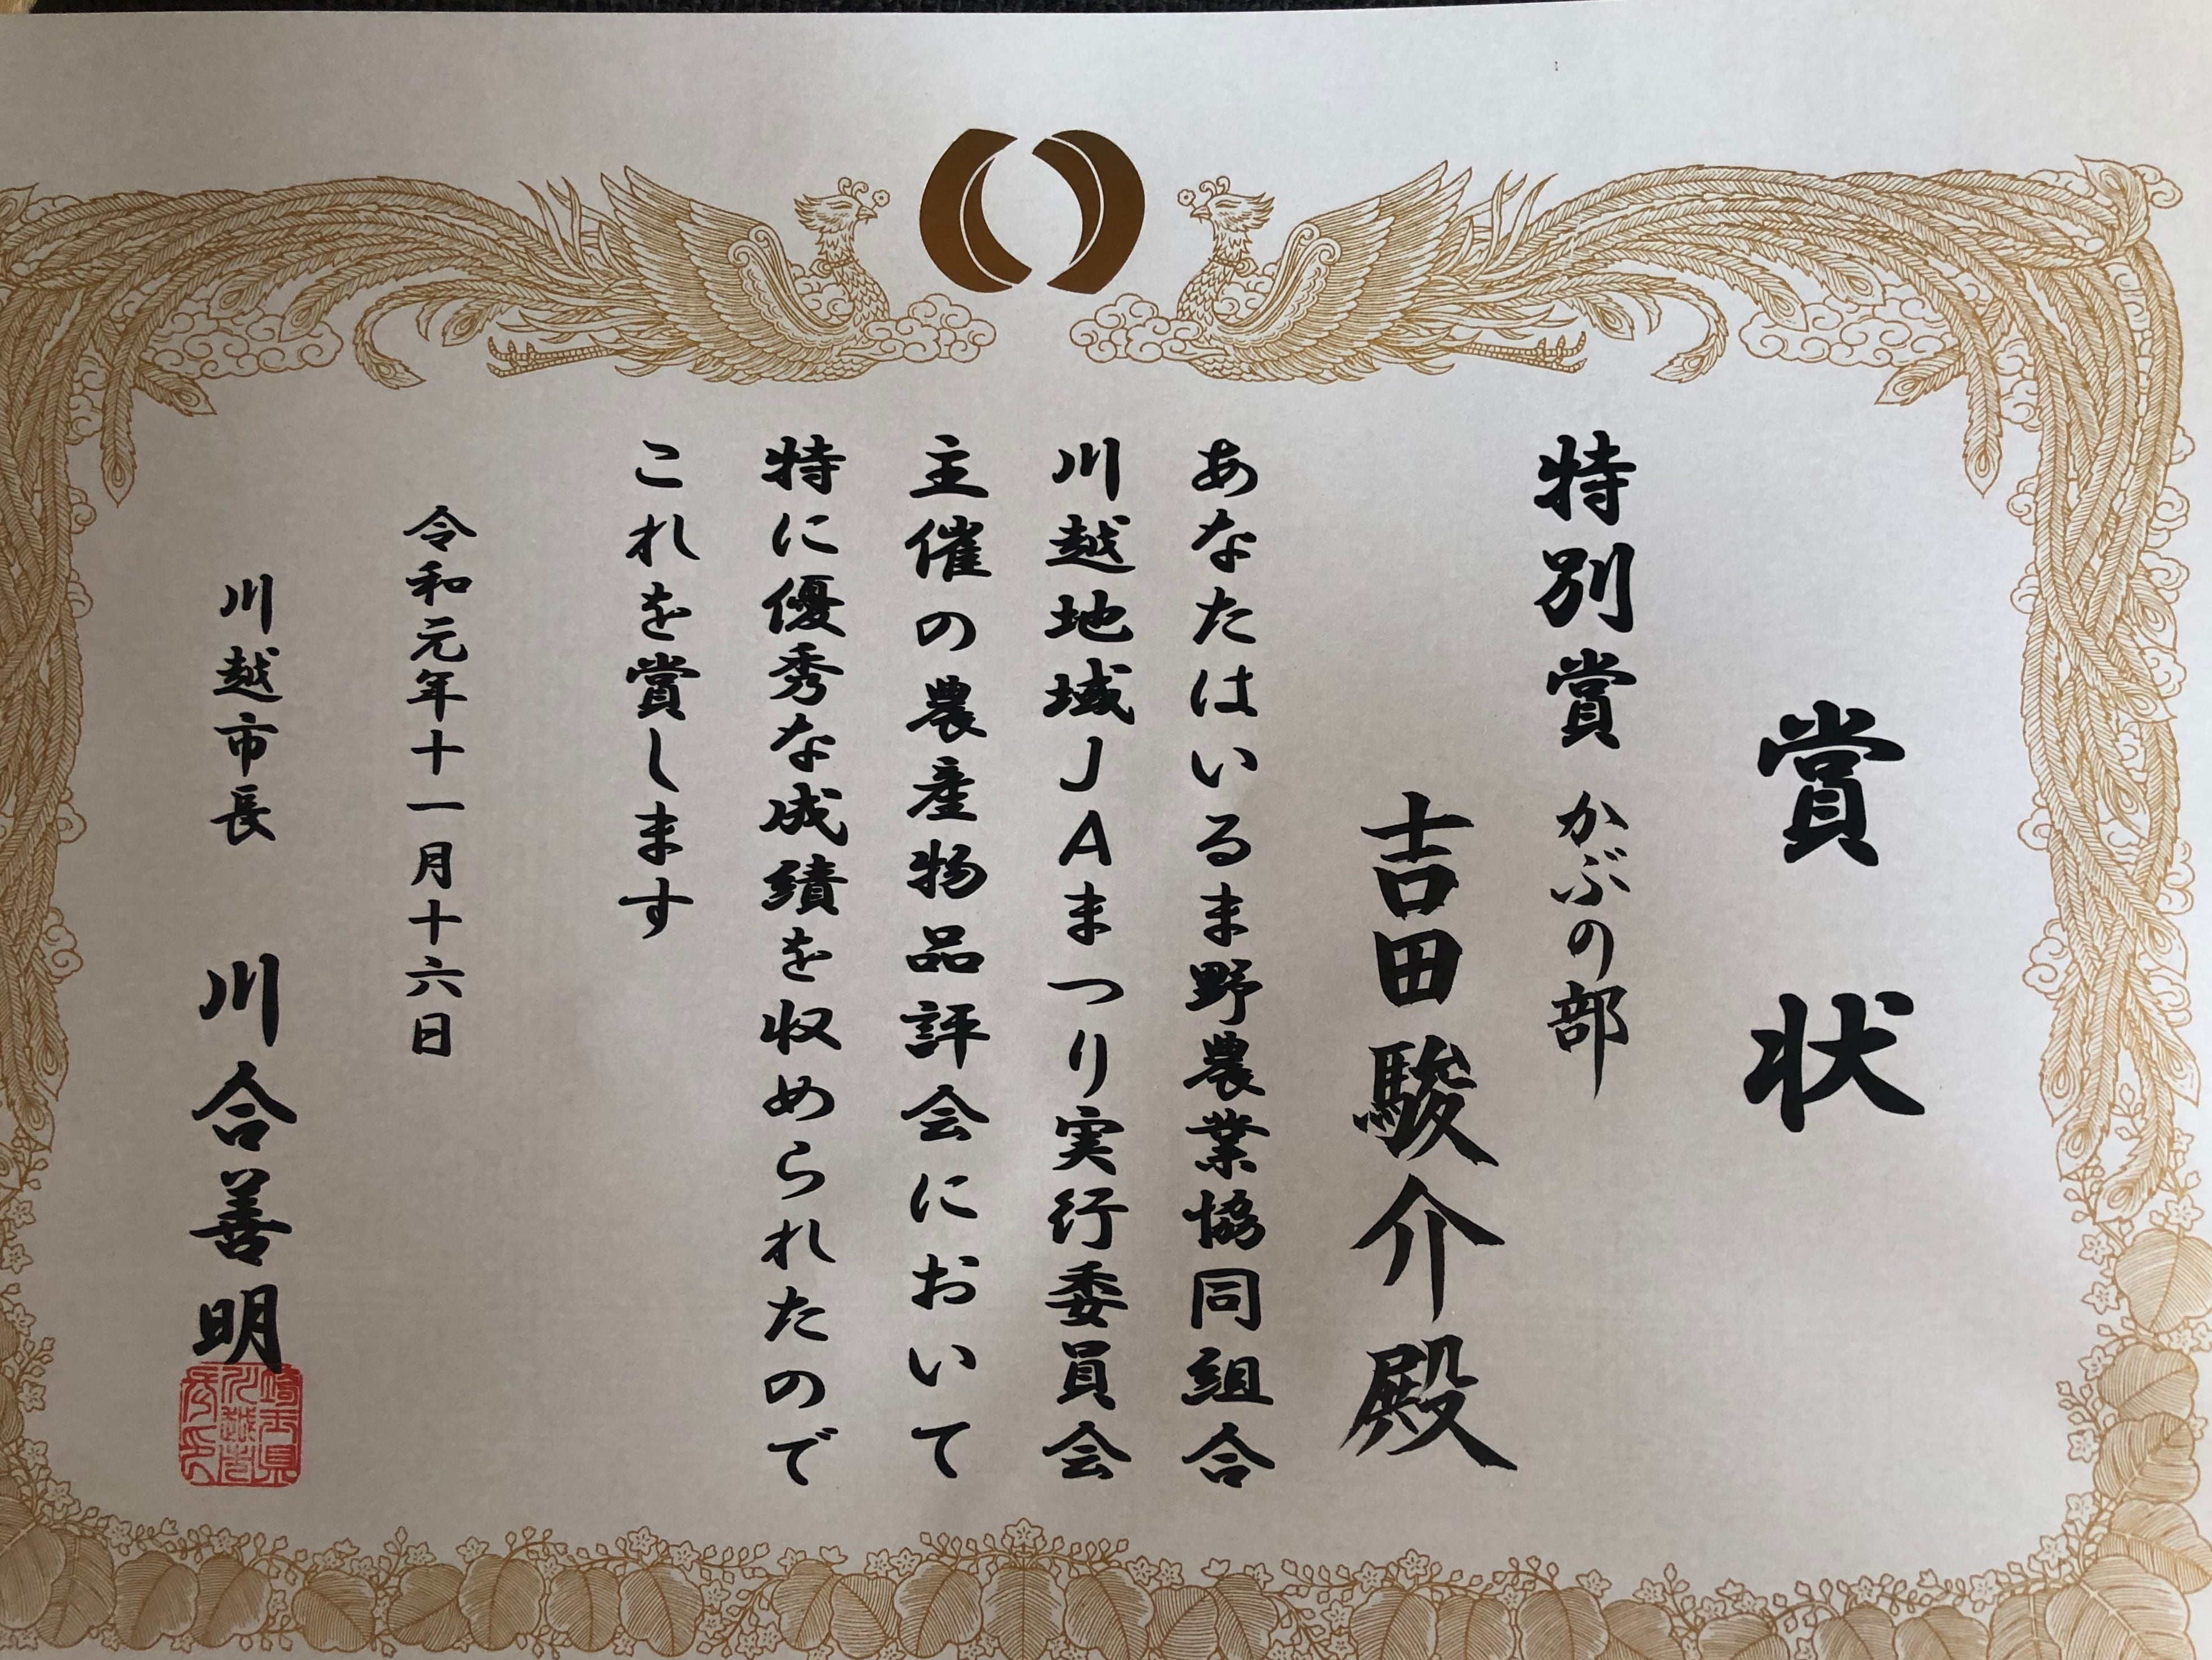 賞状
特別賞 かぶの部
吉田駿介殿
あなたはいるま野農業協同組合
川越地域JAまつり実行委員会
主催の農産物品評会において
特に優秀な成績を収められたので
これを賞します
令和元年十一月十六日
川越市長 川合善明
埼玉県
川越市
長之印